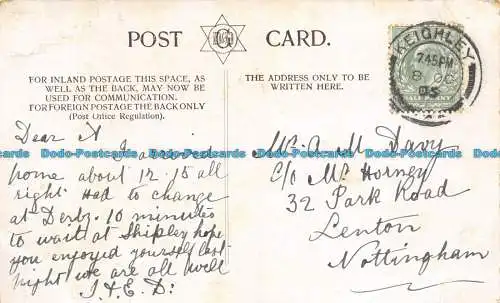 POST CARD.
FOR INLAND POSTAGE THIS SPACE, AS
WELL AS THE BACK, MAY NOW BE
USED FOR COMMUNICATION.
FOR FOREIGN POSTAGE THE BACK ONLY
(Post Office Regulation).
THE ADDRESS ONLY TO BE
WRITTEN HERE.
KEIGHLEY
7.45PM
8 OC
05
HALF PENNY
Dear A
I arrived
home about 12.15 all
right Had to change
at Derby. 10 minutes
to wait at Shipley hope
you enjoyed yourself last
night we are all well
J & E. D.
A M Davy
C/o Mr Horney
32 Park Road
Lenton
Nottingham
Dodo-Postcards Dodo-Postcards Dodo-Postcards Dodo-Postcards Dodo-Postcards
Dodo-Postcards Dodo-Postcards Dodo-Postcards Dodo-Postcards Dodo-Postcards